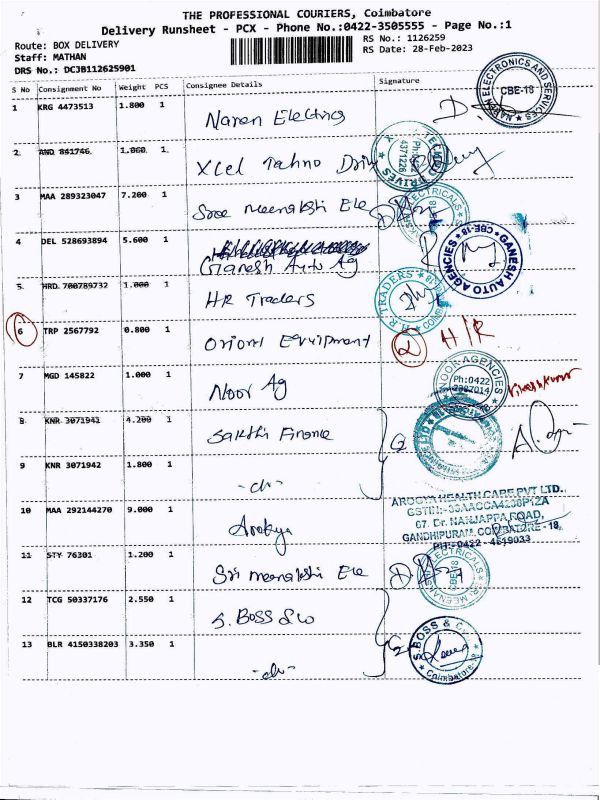 THE PROFESSIONAL COURIERS, Coimbatore
Delivery Runsheet - PCX - Phone No.:0422-3505555 - Page No.:1
Route: BOX DELIVERY
RS No.: 1126259
Staff: MATHAN
RS Date: 28-Feb-2023
DRS No.: DCJB112625901
S No Consignment No Weight PCS Consignee Details Signature
1 KRG 4473513 1.800 1 Naren Electrics
NAREN ELECTRONICS AND SERVICES CBE-18
2 AND 841746 1.060 1 Xcel Tahno Driv
Ph:0422 4371226
3 MAA 289323047 7.200 1 Sree Meenakshi Ele
ELECTRICALS CBE-18
4 DEL 528693894 5.600 1 Ganesh Auto Ag
GANESH AUTO AGENCIES CBE-18
5 HRD 700789732 1.000 1 HR Traders
H.R. TRADERS
6 TRP 2567792 0.800 1 Orient Equipment 2 H/R
7 MGD 145822 1.000 1 Noor Ag
NOOR AGENCIES Ph:0422 2397014
8 KNR 3071941 4.200 1 Sakthi Finance
9 KNR 3071942 1.800 1 -do-
10 MAA 292144270 9.000 1 Arokya
AROGYA HEALTH CARE PVT LTD.,
67, Dr. NANJAPPA ROAD,
GANDHIPURAM, COIMBATORE - 18,
PH:-0422 - 4519033
11 STY 76301 1.200 1 Sri Meenakshi Ele
SRI MEENAKSHI ELECTRICALS CBE-18
12 TCG 50337176 2.550 1 S. Boss & Co
13 BLR 4150338203 3.350 1 -do-
S. BOSS & CO Coimbatore-18